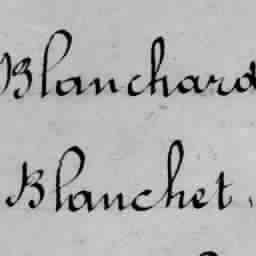 Blanchard
Blanchet.